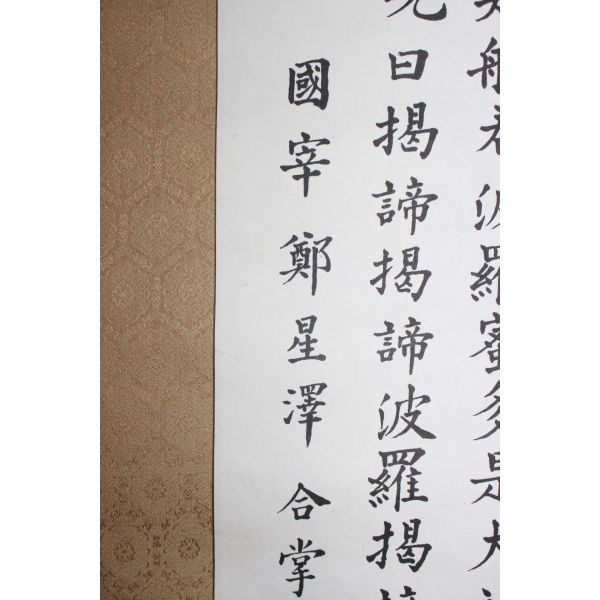 般若波羅蜜多是大
曰揭諦揭諦波羅揭
國宰鄭星澤合掌